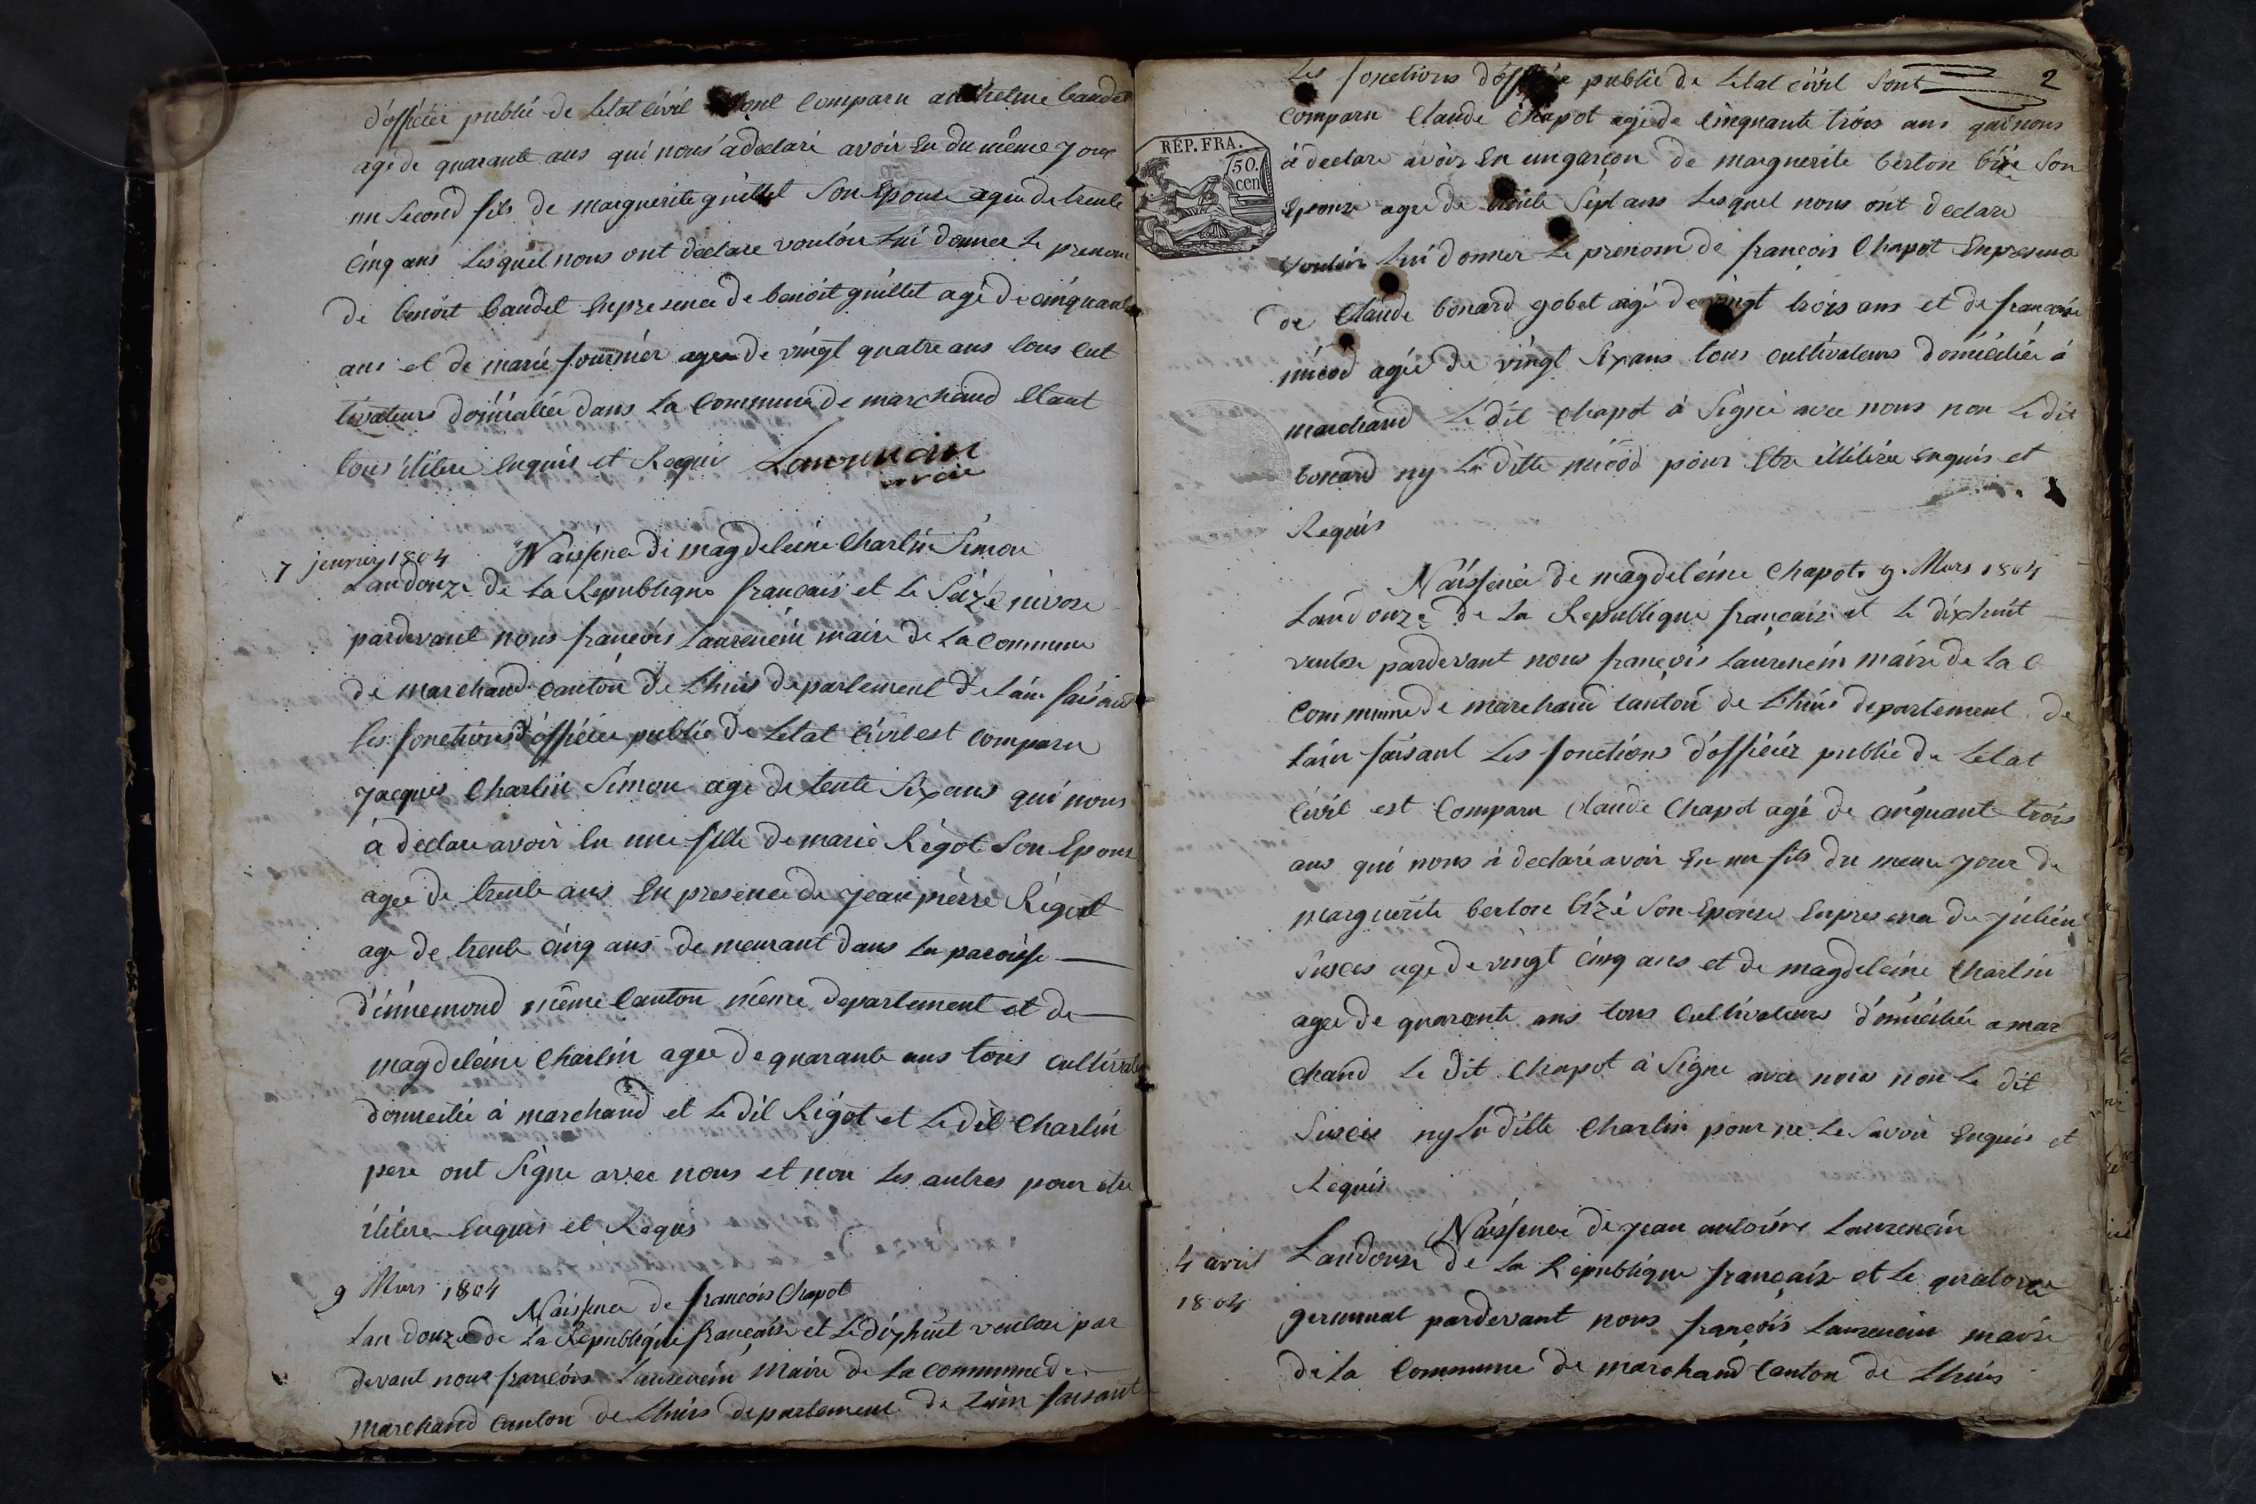 d'officier public de Letat Civil sont Comparu anthelme Caudet
agé de quarante ans qui nous a declaré avoir Eu du même jour
un Second fils de marguerite guillet Son Epouse agée de trente
Cinq ans Lesquel nous ont declare vouloir Lui donner Le prenom
de benoit Caudet En presence de benoit guillet agé de cinquante
ans et de marie fournier agée de vingt quatre ans tous cul
tivateurs domicaliée dans La Commune de marchand Etant
tous ilitere enquis et Requis Laurencin
maire
7 jenvier 1804 Naissence de magdeleine Charlin Simon
Landouze de La Republique français et le Seize nivose
pardevant nous françois Laurencin maire de La Commune
de marchand Canton de Lhuis departement de Lain faisant
Les fonctions d'officier public de Letat Civil est comparu
jacques Charlin Simon agé de tente Six ans qui nous
à declare avoir Eu une fille de marie Rigot Son Epouse
agée de trente ans En presence de jean pierre Rigot
agé de trente cinq ans de meurant dans La paroisse
d'innemond même Canton même departement et de
magdeleine Charlin agee de quarante ans tous cultivat
domicilié à marchand et Le dit Rigot et Le dit Charlin
pere ont Signe avec nous et non Les autres pour etre
ilitere Enquis et Requs
9 Mars 1804
Naissence de françois Chapot
Lan douze de La Republique française et Le dixhuit ventose par
devant nous françois Laurencin Maire de La commune de
marchand Canton de Lhuis departement de Lain faisant
2
Les fonctions d'officie public de Letat civil Sont
Comparu Claude Chapot agé de Cinquante trois ans qui nous
RÉP. FRA.
50.
cen
à declare avoir Eu un garçon de marguerite berlon bizé Son
Epouse agée de trente Sept ans Lesquel nous ont declare
vouloir Lui donner Le prenom de françois Chapot En presence
de Claude bonard gobet agé de vingt trois ans et de françoise
micod agée de vingt Six ans tous cultivateurs domiciliée à
marchand Le dit Chapot à Signé avec nous non Le dit
bonard ny La ditte micod pour Etre illitérée enquis et
Requis
Naissence de magdeleine Chapot. 9. Mars 1804
Landouze de La Republique française et le dixhuit
ventose pardevant nous françois Laurencin maire de La C
Commune de marchand Canton de Lhuis departement de
Lain faisant Les fonctions d'officier public de Letat
Civil est Comparu Claude Chapot agé de cinquante trois
ans qui nous à declaré avoir Eu un fils du meme jour de
marguerite berlon bizé Son Epouse En presence de julien
Sucies agé de vingt Cinq ans et de magdeleine Charlin
agée de quarante ans tous Cultivateurs domicilié a mar
chand Le dit Chapot à Signe avec nous non Le dit
Sucies ny La ditte Charlin pour ne Le Savoir Enquis et
Requis
Naissence de jean antoine Laurencin
4 avril
1804
Landouze de La Republique française et Le quatorze
germinal pardevant nous françois Laurencin maire
de La Commune de marchand Canton de Lhuis